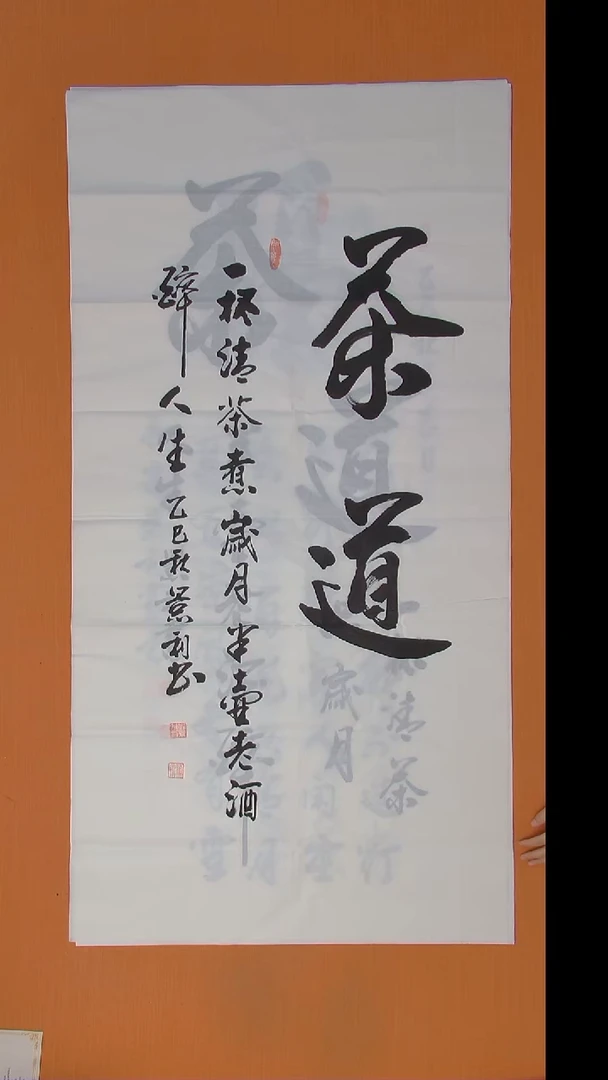 茶道
一杯清茶煮歲月半壺老酒
醉人生 乙巳秋景利书